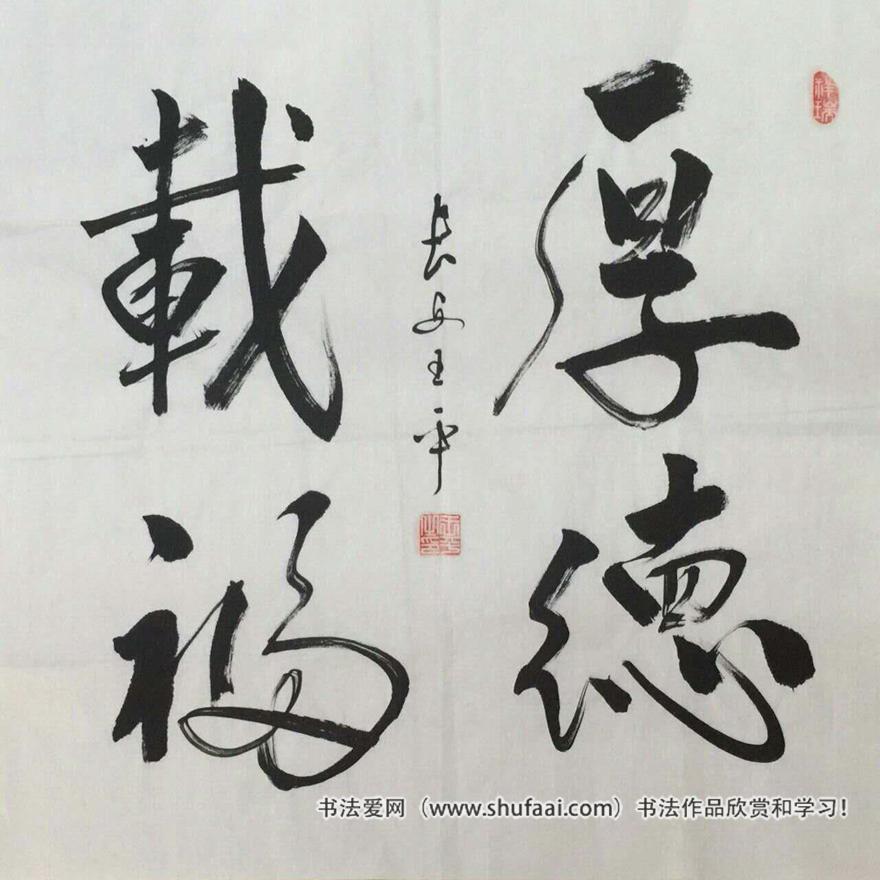 厚德
載福
长安王平
祥瑞
王平之印
书法爱网（www.shufaai.com）书法作品欣赏和学习！